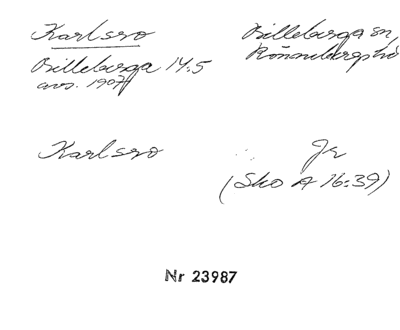 Karlsro
Billeberga sn,
Rönnebergs hd
Billeberga 14:5
avs. 1907
Karlsro
Jr
(Sko A 16:39)
Nr 23987